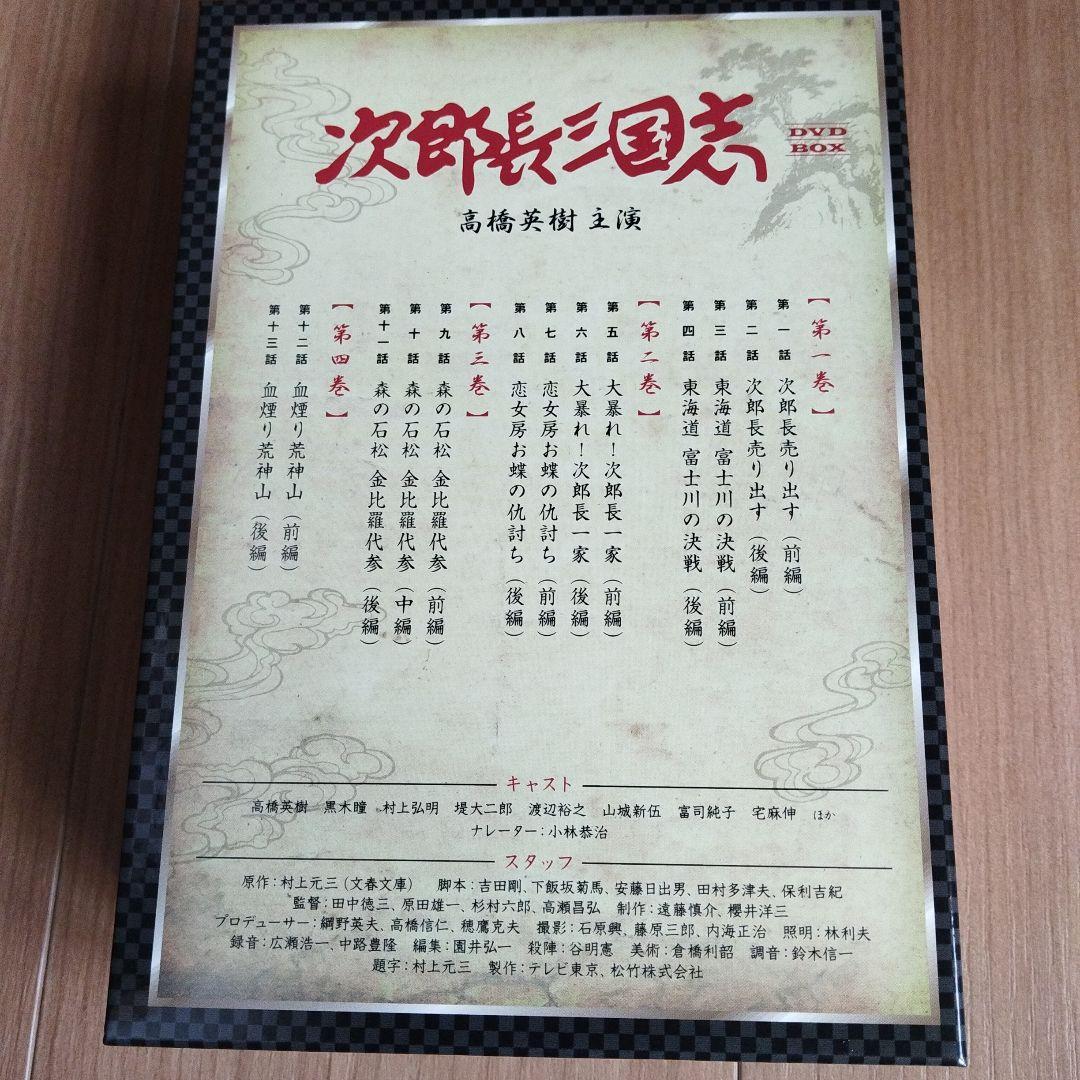 次郎長三国志
DVD
BOX
高橋英樹 主演
【第一巻】
第一話 次郎長売り出す（前編）
第二話 次郎長売り出す（後編）
第三話 東海道 富士川の決戦（前編）
第四話 東海道 富士川の決戦（後編）
【第二巻】
第五話 大暴れ！次郎長一家（前編）
第六話 大暴れ！次郎長一家（後編）
第七話 恋女房お蝶の仇討ち（前編）
第八話 恋女房お蝶の仇討ち（後編）
【第三巻】
第九話 森の石松 金比羅代参（前編）
第十話 森の石松 金比羅代参（中編）
第十一話 森の石松 金比羅代参（後編）
【第四巻】
第十二話 血煙り荒神山（前編）
第十三話 血煙り荒神山（後編）
キャスト
高橋英樹 黒木瞳 村上弘明 堤大二郎 渡辺裕之 山城新伍 富司純子 宅麻伸 ほか
ナレーター：小林恭治
スタッフ
原作：村上元三（文春文庫） 脚本：吉田剛、下飯坂菊馬、安藤日出男、田村多津夫、保利吉紀
監督：田中徳三、原田雄一、杉村六郎、高瀬昌弘 制作：遠藤慎介、櫻井洋三
プロデューサー：綱野英夫、高橋信仁、穂鷹克夫 撮影：石原興、藤原三郎、内海正治 照明：林利夫
録音：広瀬浩一、中路豊隆 編集：園井弘一 殺陣：谷明憲 美術：倉橋利韶 調音：鈴木信一
題字：村上元三 製作：テレビ東京、松竹株式会社